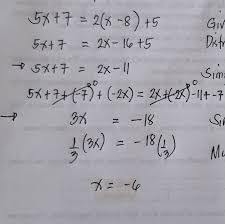 5x+7 = 2(x-8)+5 Giv
5x+7 = 2x-16+5 Dist
→ 5x+7 = 2x-11 Sim
5x+7+(-7)+(-2x) = 2x+(-2x)-11+-7
→ 3x = -18 Sim
1/3 (3x) = -18 (1/3) Mu
x = -6